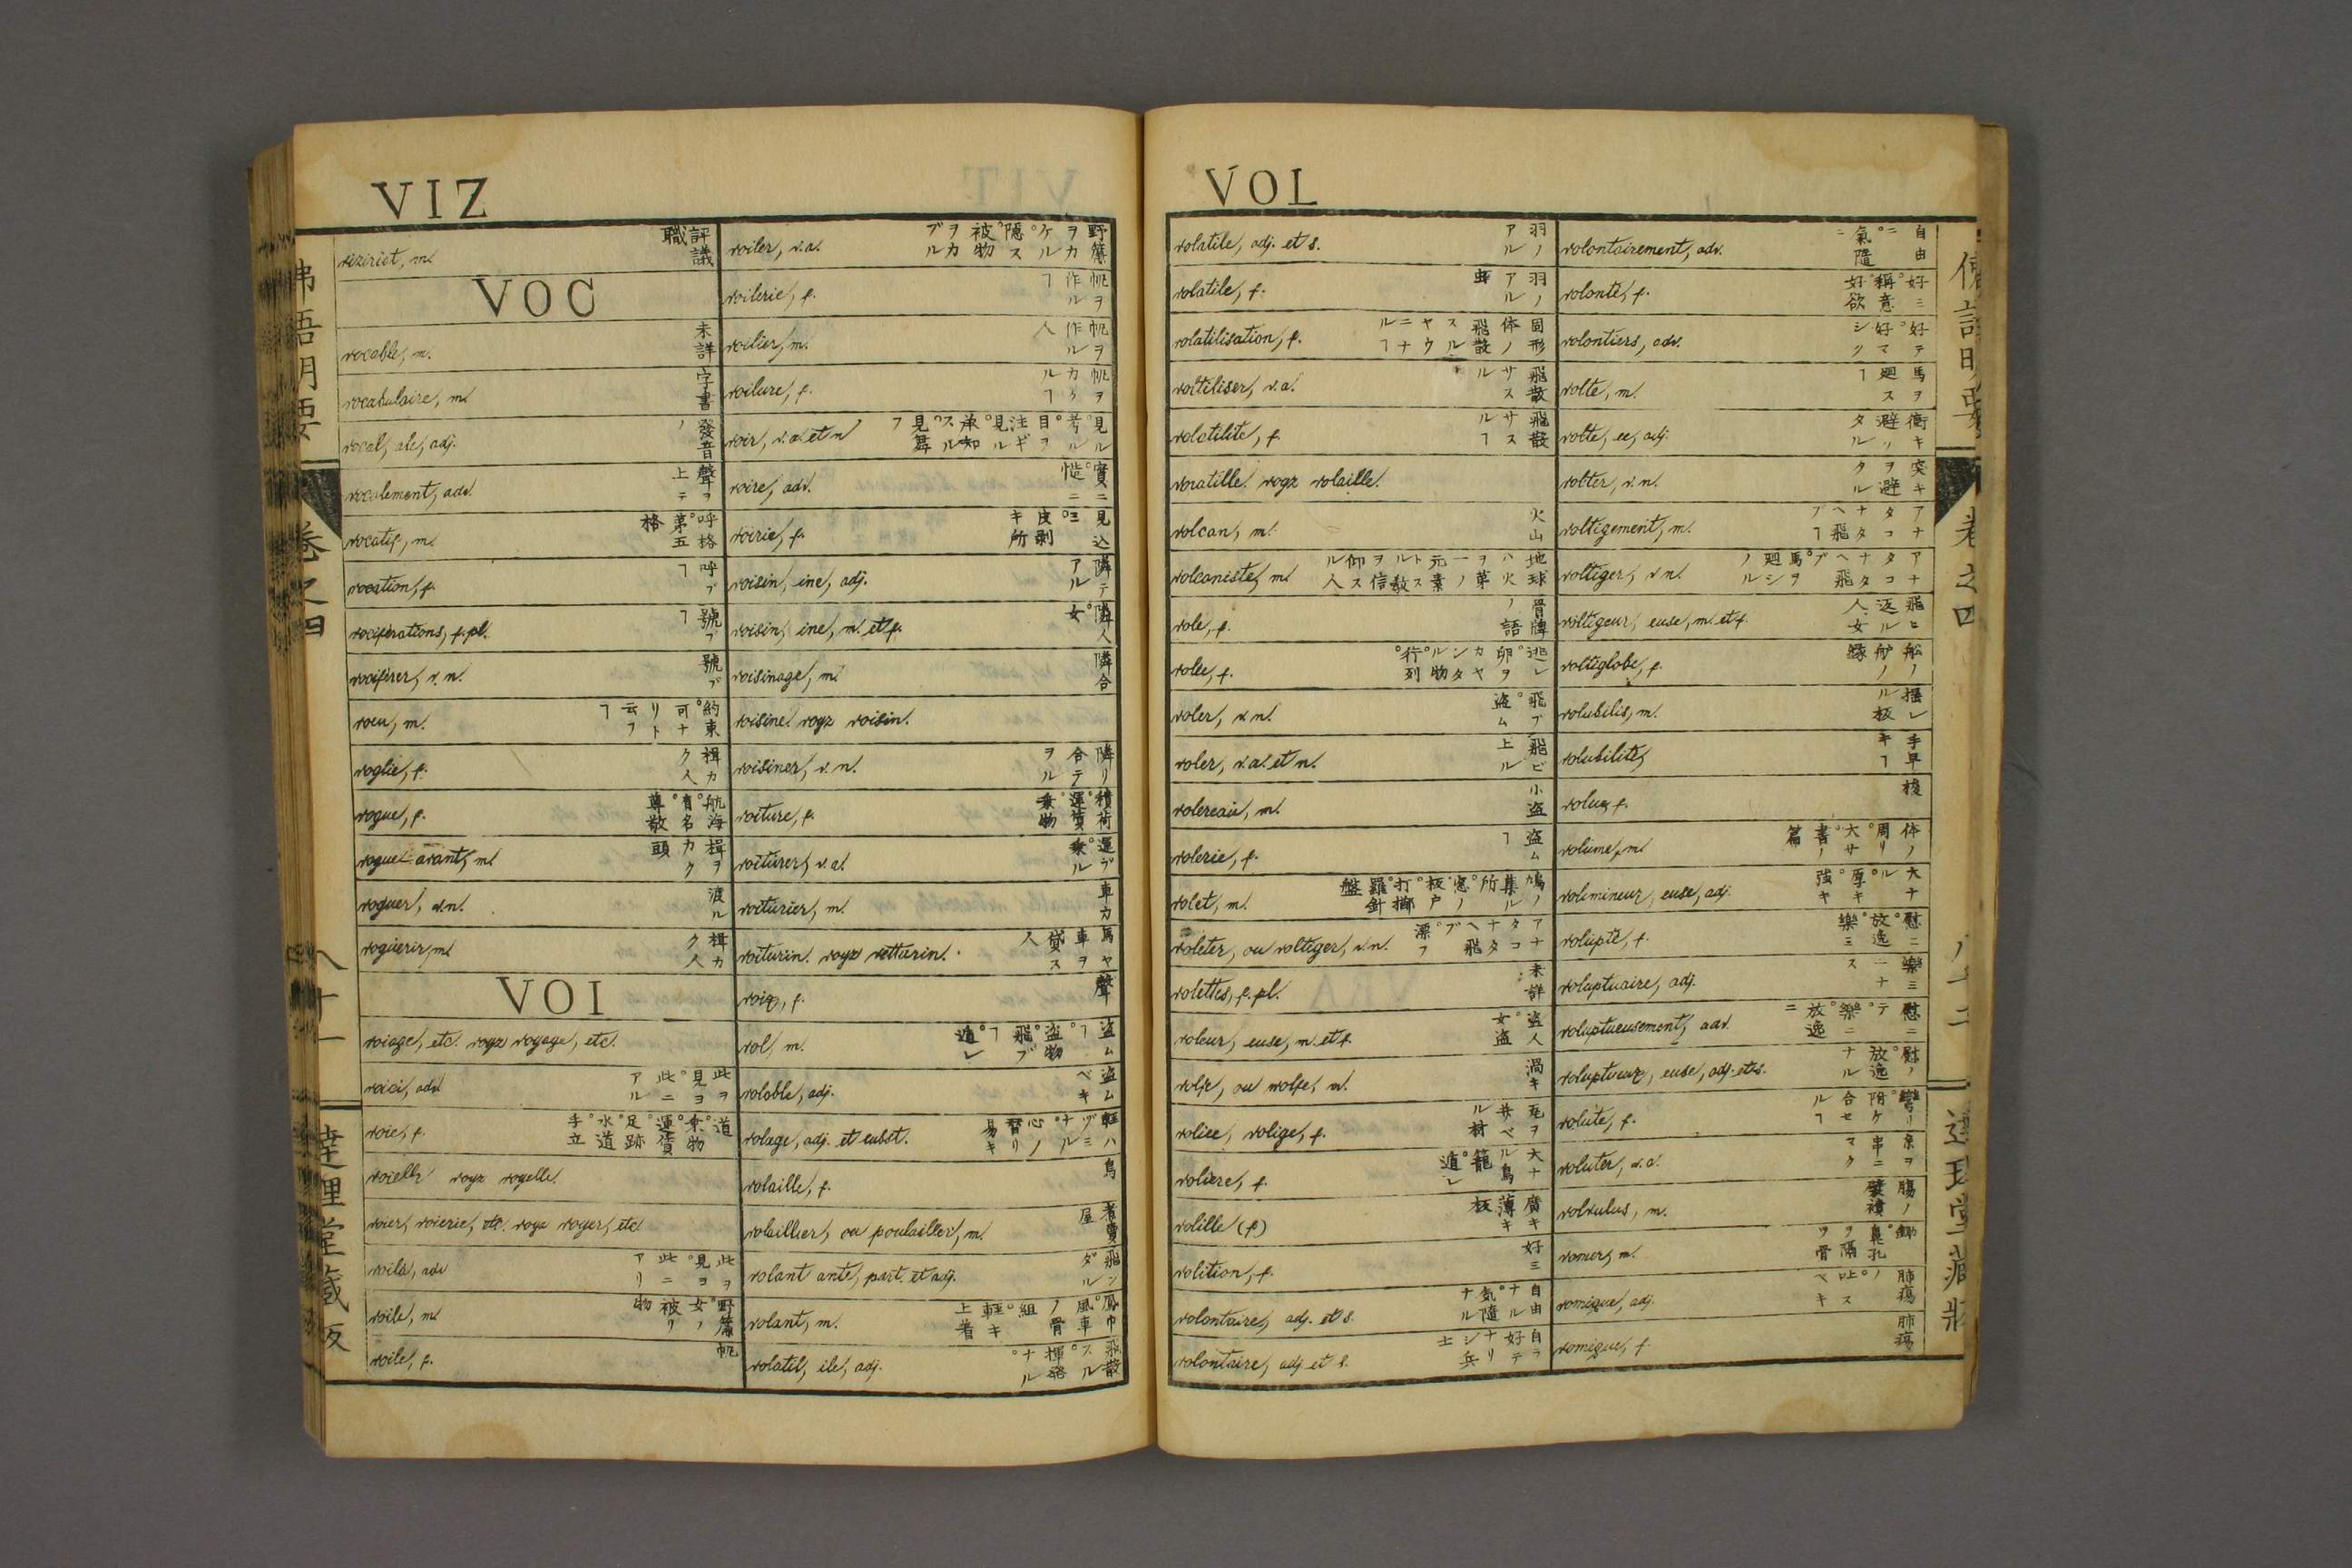 VIZ
viziriat, m. 評議職
VOC
vocable, m. 未詳
vocabulaire, m. 字書
vocal, ale, adj. 發音ノ
vocalement, adv. 聲ヲ上テ
vocatif, m. 呼格。第五格
vocation, f. 呼ブヿ
vociférations, f. pl. 號ブヿ
vociférer, v. n. 號ブ
voeu, m. 約束。可ナリト云フヿ
voglie, f. 楫カク人
vogue, f. 航海。有名。尊敬
vogue-avant, m. 楫ヲカク頭
voguer, v. n. 波ル
voguerir, m. 楫カク人
VOI
voiage, etc. voyz voyage, etc.
voici, adv. 此ヲ見ヨ。此ニアル
voie, f. 道。乗物。運貨。足跡。水道。手立
voielle voyz voyelle.
voier, voierie, etc. voyz voyer, etc.
voilà, adv. 此ヲ見ヨ。此ニアリ
voile, m. 野簾。女ノ被リ物
voile, f. 帆
voiler, v. a. 野簾ヲカケル。隠ス。被物ヲカブル
voilerie, f. 帆ヲ作ルヿ
voilier, m. 帆ヲ作ル人
voilure, f. 帆ヲカケルヿ
voir, v. a. et n. 見ル。考ル。目ヲ注ギ見ル。承知ス。見舞フ
voire, adv. 實ニ。慥ニ
voirie, f. 見込。皮剥キ所
voisin, ine, adj. 隣テアル
voisin, ine, m. et f. 隣人。女
voisinage, m. 隣合
voisine. voyz voisin.
voisiner, v. n. 隣リ合テヲル
voiture, f. 積荷。運賃。乗物
voiturer, v. a. 運ブ。乗ル
voiturier, m. 車力
voiturin. voyz vetturin. 馬ヤ車ヲ貸ス人
voix, f. 聲
vol, m. 盗ムヿ。盗物。飛ブヿ。遁レ
volable, adj. 盗ムベキ
volage, adj. et subst. 軽ハヅミナル。心ノ替リ易キ
volaille, f. 鳥
volaillier, ou poulailler, m. 者賣屋
volant ante, part. et adj. 飛ンダル
volant, m. 鳳巾。風車ノ骨組。軽キ上着
volatil, ile, adj. 飛散スル。揮發ナル
佛語明要 卷之四 八十一 達理堂蔵版
VOL
volatile, adj. et s. 羽ノアル
volatile, f. 羽ノアル虫
volatilisation, f. 固形体ノ飛散スルヤウニナルヿ
voltiliser, v. a. 飛散サスル
volatilité, f. 飛散サスルヿ
voratille. voyz volaille.
volcan, m. 火山
volcaniste, m. 地球ハ火ヲ第一ノ元素トスル教ヲ信仰スル人
vole, f. 骨牌ノ語
volée, f.
voler, v. n. 飛ブ。盗ム
voler, v. a. et n. 飛ビ上ル
volereau, m. 小盗
volerie, f. 盗ムヿ
volet, m. 鳩ノ集ル所。窓ノ板戸。打擲。羅針盤
voleter, ou voltiger, v. n. アナタコナタヘ飛ブ。漂フ
volettes, f. pl. 未詳
voleur, euse, m. et f. 盗人。女盗
volfe, ou wolfe, m. 渦キ
volice, volige, f. 瓦ヲ並ベル材
volière, f. 大ナル鳥籠。遁レ
volille (f) 廣キ薄キ板
volition, f. 好ミ
volontaire, adj. et s. 自由ナル。気隨ナル
volontaire, adj. et s. 自ラ好テナリシ兵士
volontairement, adv. 自由ニ。氣隨ニ
volonté, f. 好ミ。稱意。好欲
volontiers, adv. 好テ。好マシク
volte, m. 馬ヲ廻スヿ
volté, ée, adj. 衝キ避ソタル
volter, v. n. 突キヲ避タル
voltigement, m. アナタコナタヘ飛ブヿ
voltiger, v. n. アナタコナタヘ飛ブ。馬ヲ廻シノル
voltigeur, euse, m. et f. 飛ヒ返ル人。女
voltiglobe, f. 舩ノ舮ノ縁
volubilis, m.
volubilité, 手早キヿ
volue, f. 梭
volume, m. 体ノ周リ。大サ。書ノ篇
volumineux, euse, adj. 大ナル。厚キ。強キ
volupté, f. 慰ニ。放逸。樂ミ
voluptuaire, adj.
voluptueusement, adv. 慰ニテ。樂ニ。放逸ニ
voluptueux, euse, adj. et s. 慰ノ。放逸ナル
volute, f.
voluter, v. a. 糸ヲ串ニマク
volvulus, m. 腸ノ襞積
vomer, m. 鋤。鼻孔ヲ隔ツ骨
vomique, adj. ノ。吐スベキ
vomique, f. 肺瘍
卷之四 八十二 達理堂蔵版